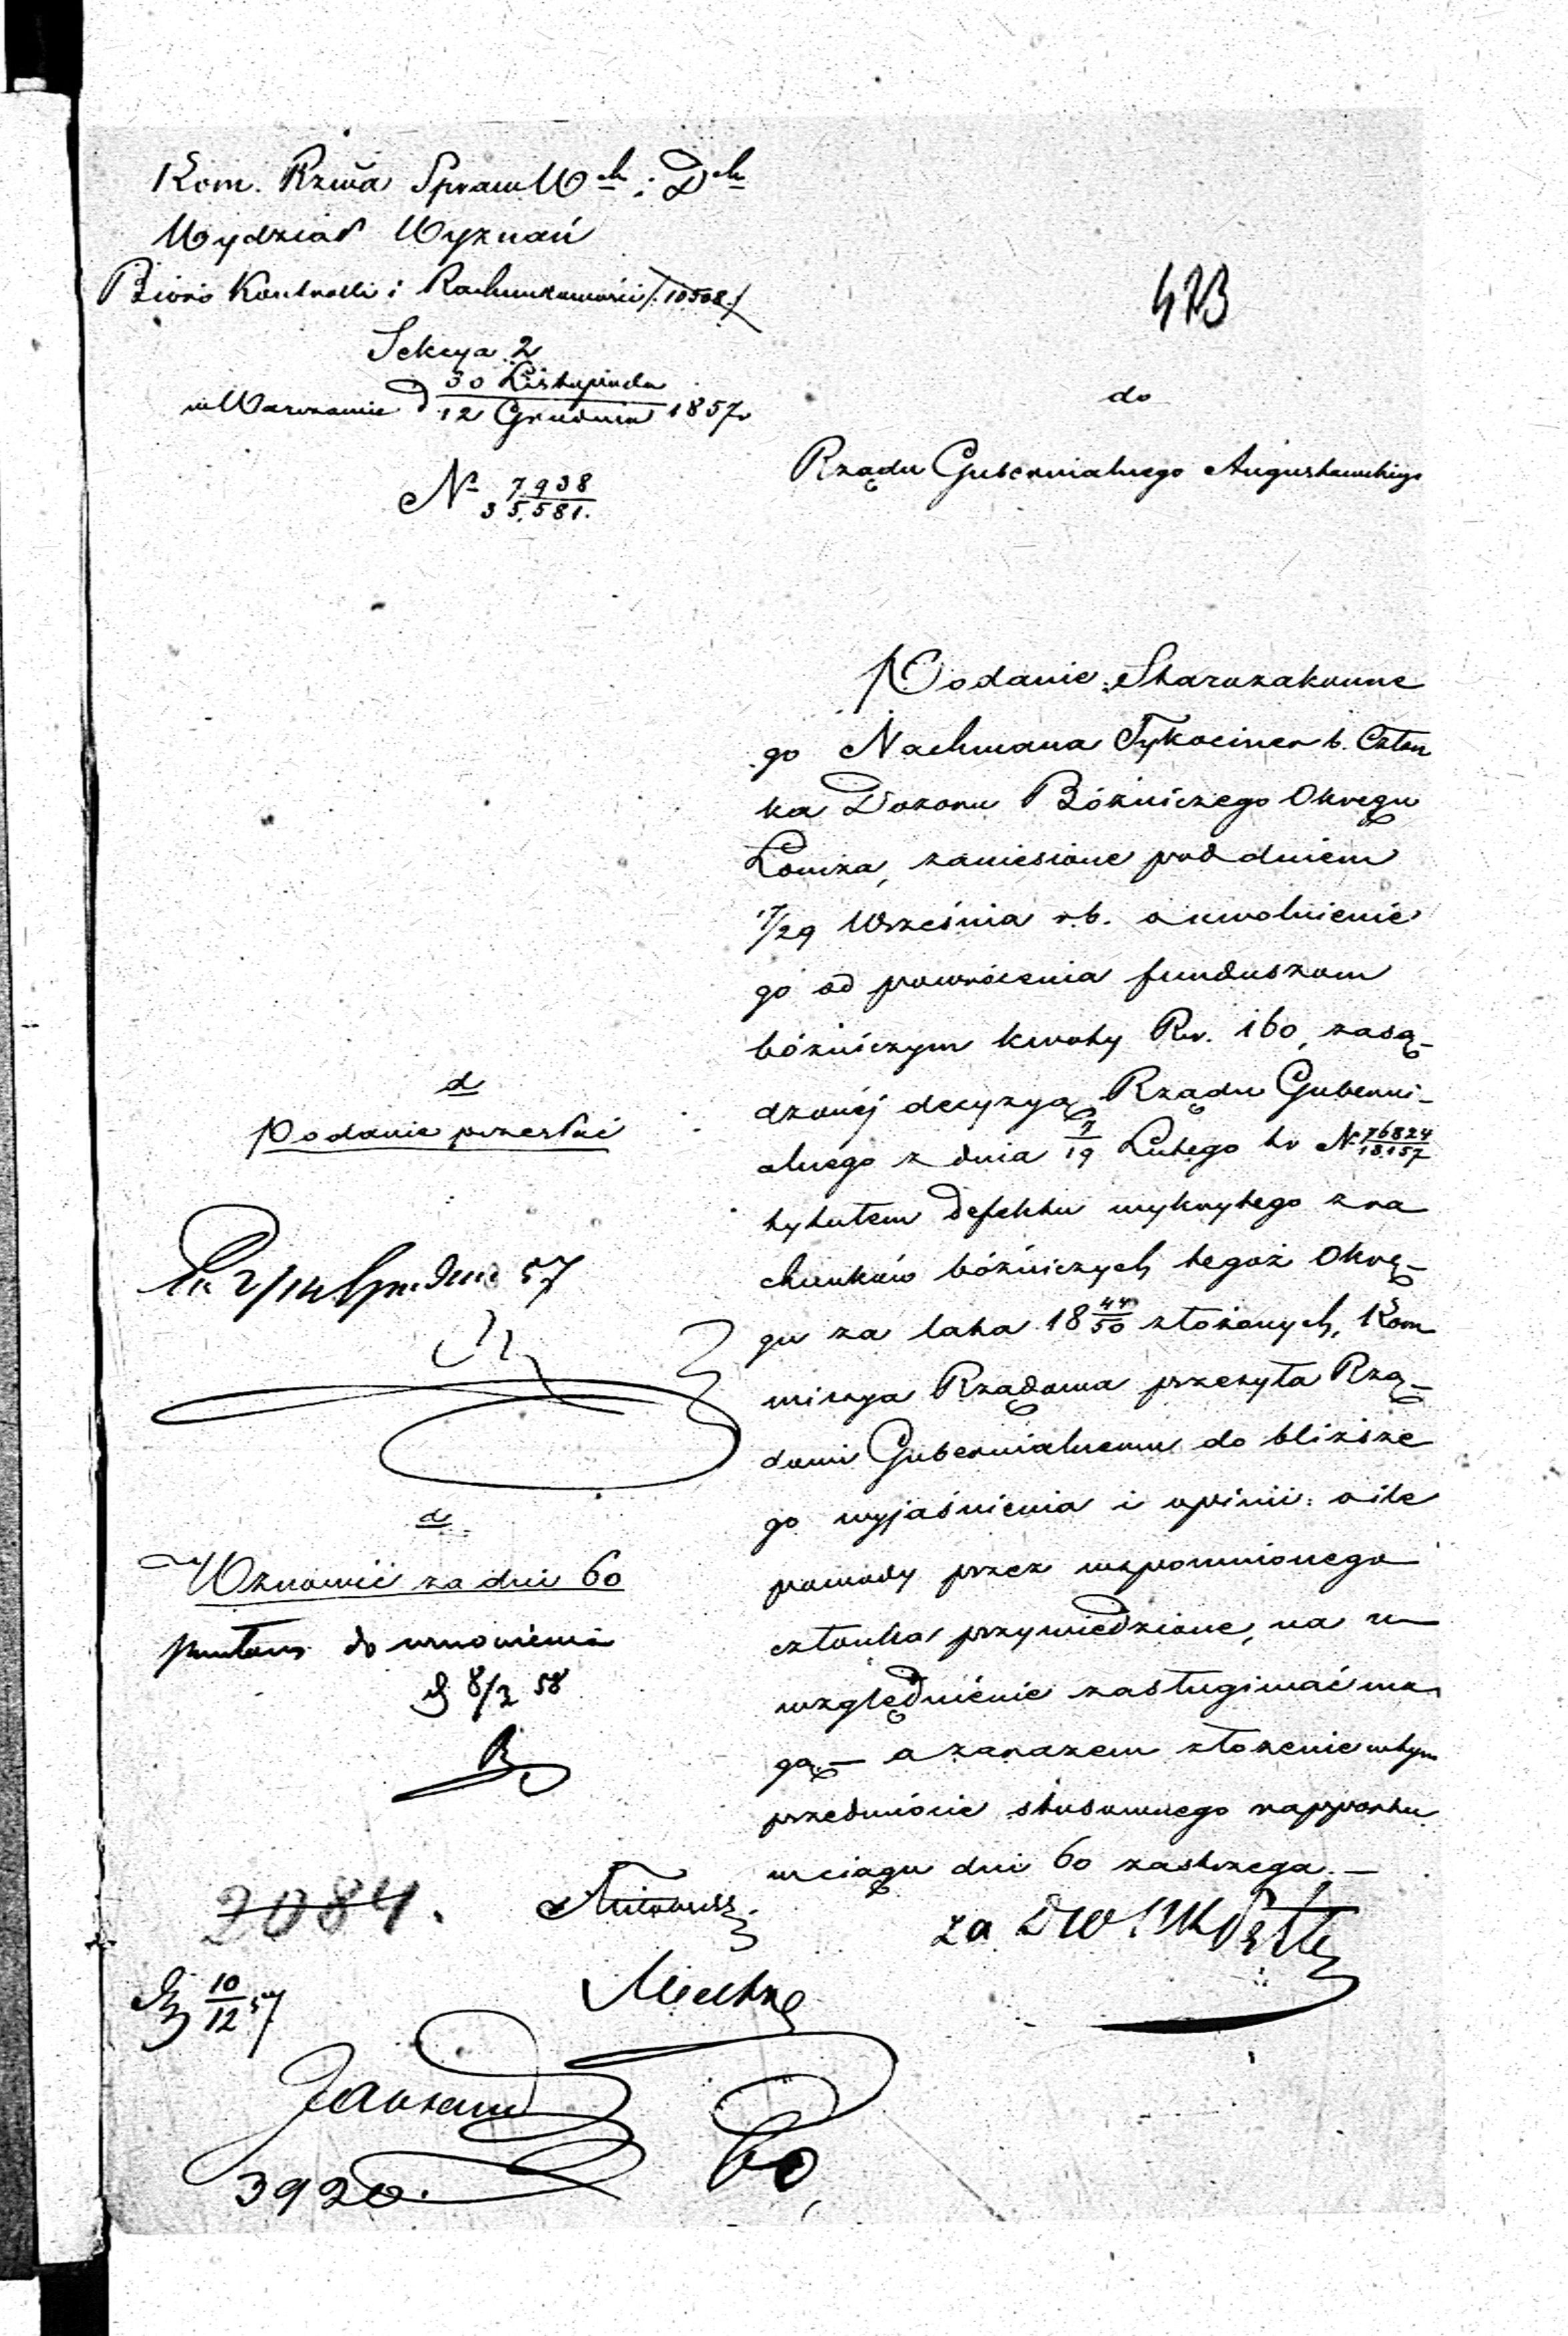 Kom. Rzwa Spraw Wch i Dch
Wydział Wyznań
Biuro Kontrolli i Rachunkowości /:10508:/
Sekcya 2
w Warszawie d 30 Listopada / 12 Grudnia 1857 r
No 7938 / 35,581.
473
do
Rządu Gubernialnego Augustowskiego
Podanie Starozakonne
go Nachmana Tykociner b. Człon
ka Dozoru Bóżniczego Okręgu
Łomża, zaniesione pod dniem
17/29 Września r.b. o uwolnienie
go od powrócenia funduszom
bóżniczym kwoty Rsr. 160, zasą-
dzonéj decyzyą Rządu Guberni-
alnego z dnia 7/19 Lutego tr N 76824/18157
tytułem defektu wykrytego z ra
chunków bóżniczych tegoż Okrę-
gu za lata 18 44/50 złożonych, Kom
missya Rządowa przesyła Rzą-
dowi Gubernialnemu do bliższe
go wyjaśnienia i opinii: o ile
powody przez wspomnionego
członka przywiedzione, na u-
względnienie zasługiwać mo
gą — a zarazem złożenie w tym
przedmiocie stosownego rapportu
w ciągu dni 60 zastrzega. —
za
d
Podanie przesłać
2/14 Grudnia 57
d
Wznowić za dni 60
do wznowienia
d 8/2 58
2084.
10/12 57
3920.
60